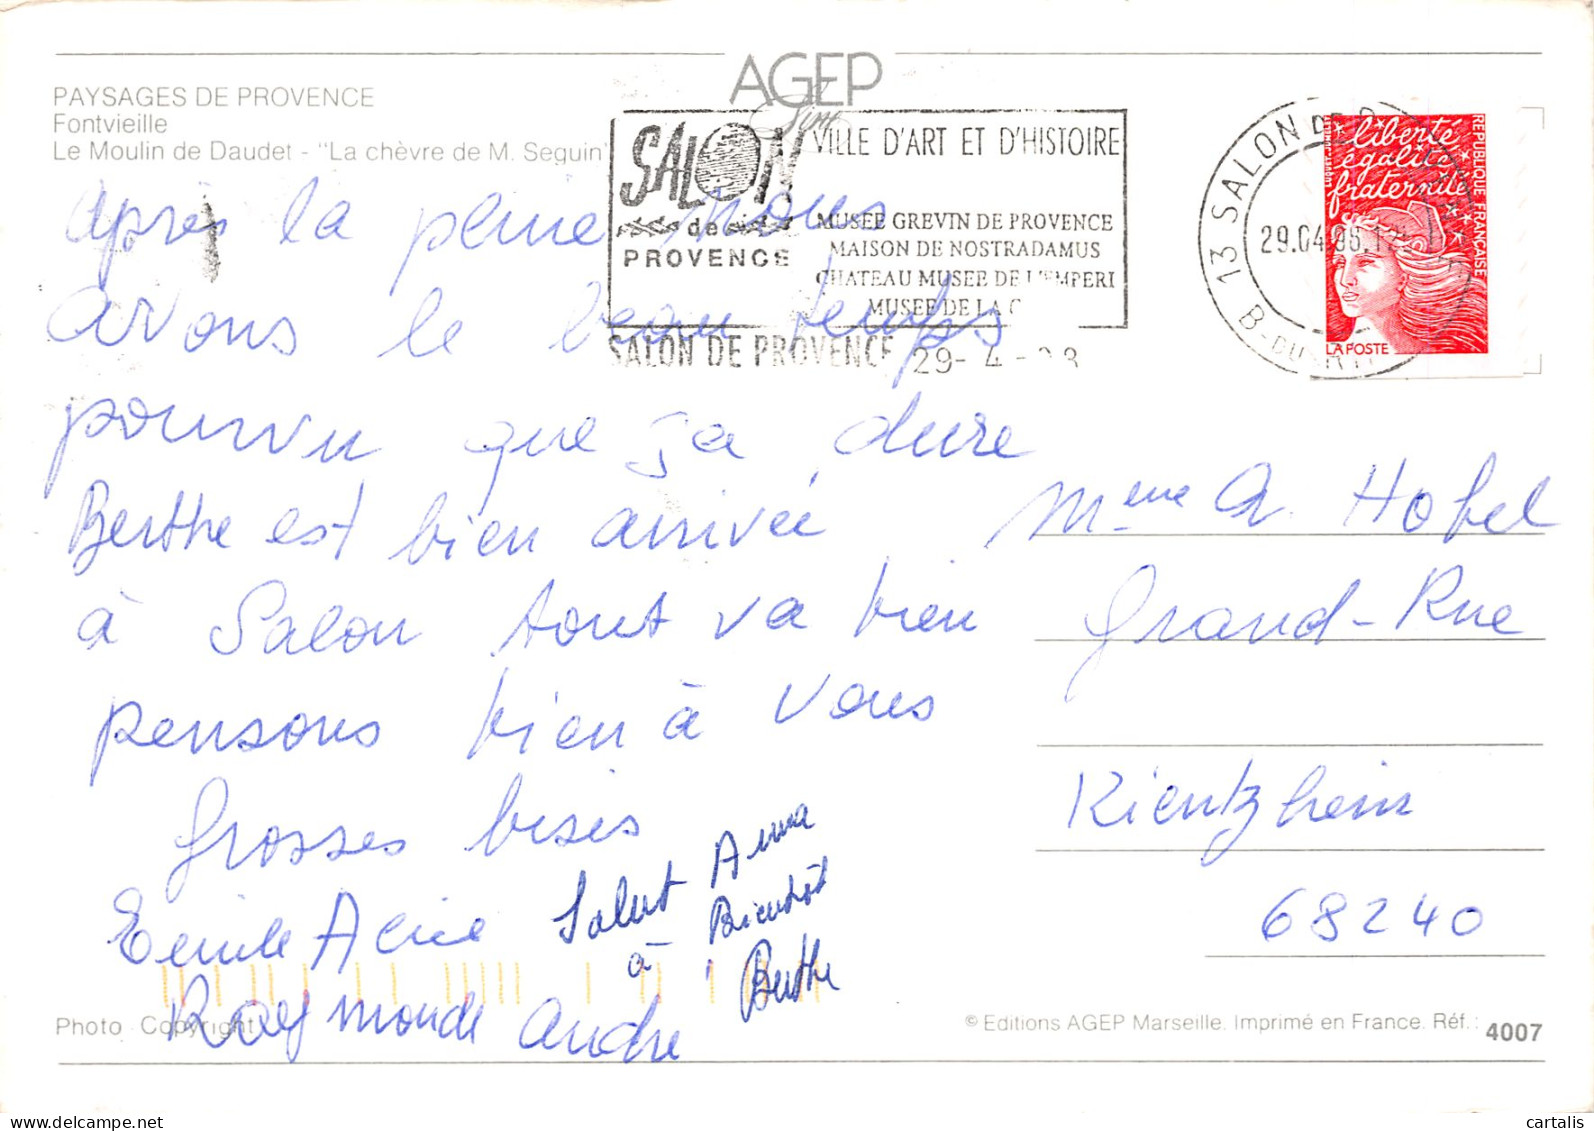 AGEP
PAYSAGES DE PROVENCE
Fontvieille
Le Moulin de Daudet - "La chèvre de M. Seguin"
SALON
de
PROVENCE
VILLE D'ART ET D'HISTOIRE
MUSEE GREVIN DE PROVENCE
MAISON DE NOSTRADAMUS
CHATEAU MUSEE DE L'EMPERI
MUSEE DE LA
SALON DE PROVENCE 29-4-
13 SALON DE
29.04
B-DU-R
liberté
égalité
fraternité
RÉPUBLIQUE FRANÇAISE
LA POSTE
après la pluie nous
avons le beau temps
pourvu que ça dure
Berthe est bien arrivée
à Salon tout va bien
pensons bien à vous
Grosses bises
Emile
Raymonde André
Salut Anna
à Bientôt
Berthe
Mme A. Hobel
Grand-Rue
Kientzheim
68240
Photo Copyright
© Editions AGEP Marseille. Imprimé en France. Réf.: 4007
cartalis